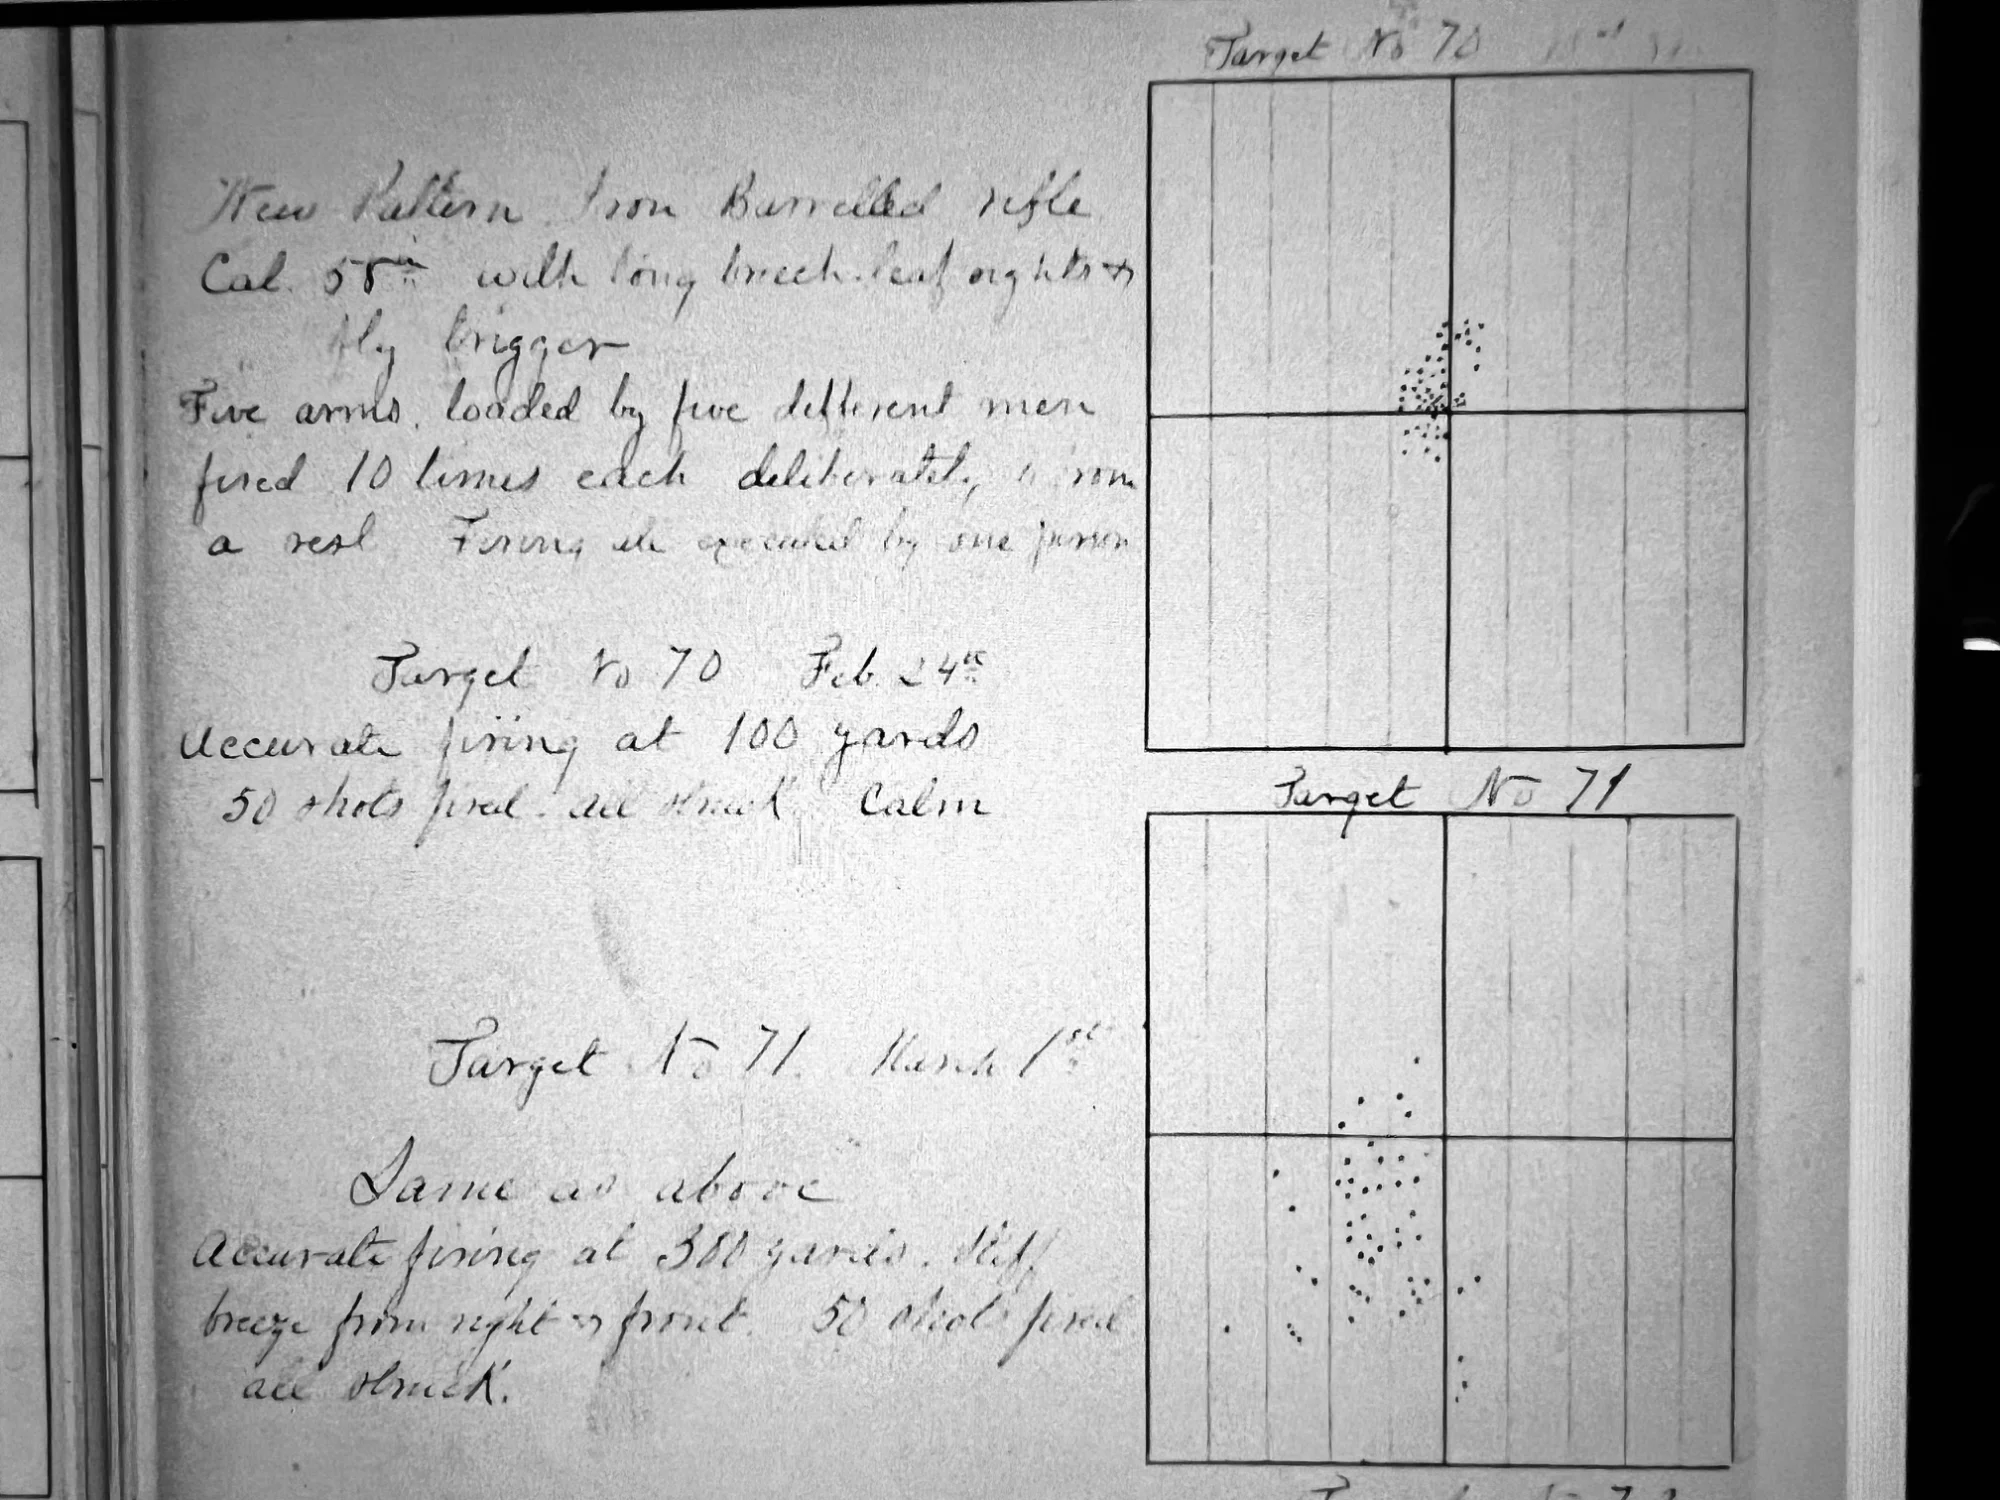 New Pattern Iron Barrelled rifle
Cal. 58in with long breech leaf sights &
fly trigger
Five arms, loaded by five different men
fired 10 times each deliberately, from
a rest Firing all executed by one person
Target No 70 Feb. 24th
Accurate firing at 100 yards
50 shots fired. all struck Calm
Target No 71. March 1st
Same as above
Accurate firing at 300 yards. Stiff
breeze from right & front. 50 shots fired
all struck.
Target No 70
Target No 71